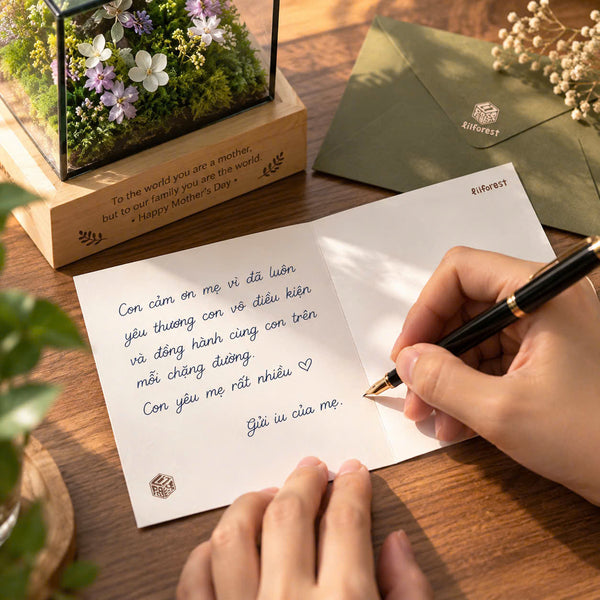 To the world you are a mother,
but to our family you are the world.
• Happy Mother's Day •
lilforest
lilforest
Con cảm ơn mẹ vì đã luôn
yêu thương con vô điều kiện
và đồng hành cùng con trên
mỗi chặng đường.
Con yêu mẹ rất nhiều ♡
Gửi iu của mẹ.